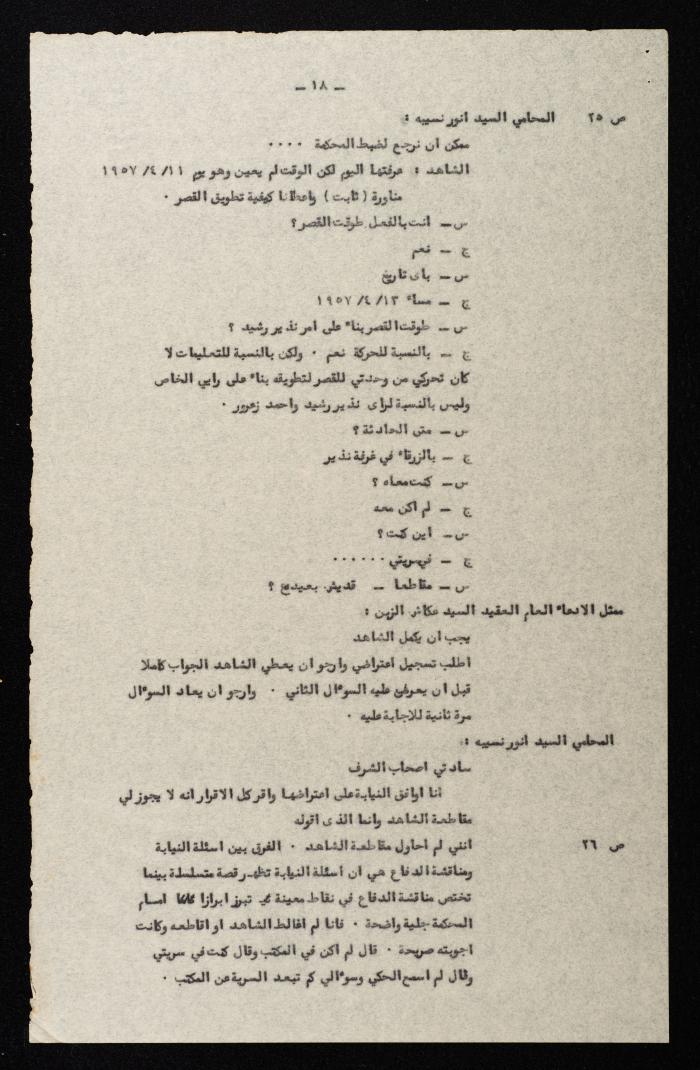 ــ ١٨ ــ
ص ٢٥ المحامي السيد انور نسيبه :
ممكن ان نرجع لضبط المحكمة ٠٠٠٠
الشاهد : عرفتها اليوم لكن الوقت لم يعين وهو يوم ١١ /٤ /١٩٥٧
مناورة ( ثابت ) واعطانا كيفية تطويق القصر ٠
س ــ انت بالفعل طوقت القصر ؟
ج ــ نعم
س ــ باى تاريخ
ج ــ مساء ١٣ /٤ /١٩٥٧
س ــ طوقت القصر بناء على امر نذير رشيد ؟
ج ــ بالنسبة للحركة نعم ٠ ولكن بالنسبة للتعليمات لا
كان تحركي من وحدتي للقصر لتطويقه بناء على رايي الخاص
وليس بالنسبة لراى نذير رشيد واحمد زعرور ٠
س ــ متى الحادثة ؟
ج ــ بالزرقاء في غرفة نذير
س ــ كنت معاه ؟
ج ــ لم اكن معه
س ــ اين كنت ؟
ج ــ في سريتي ٠٠٠٠٠٠
س ــ مقاطعا ــ قديش بعيدة ؟
ممثل الادعاء العام العقيد السيد عكاش الزبن :
يجب ان يكمل الشاهد
اطلب تسجيل اعتراضي وارجو ان يعطي الشاهد الجواب كاملا
قبل ان يعرض عليه السوءال الثاني ٠ وارجو ان يعاد السوءال
مرة ثانية للاجابة عليه ٠
المحامي السيد انور نسيبه :
سادتي اصحاب الشرف
انا اوافق النيابة على اعتراضها واقر كل الاقرار انه لا يجوز لي
مقاطعة الشاهد وانما الذى اقوله
ص ٢٦ انني لم احاول مقاطعة الشاهد ٠ الفرق بين اسئلة النيابة
ومناقشة الدفاع هي ان اسئلة النيابة تظهر قصة متسلسلة بينما
تختص مناقشة الدفاع في نقاط معينة تبرز ابرازا امام
المحكمة جلية واضحة ٠ فانا لم اغالط الشاهد او اقاطعه وكانت
اجوبته صريحة ٠ قال لم اكن في المكتب وقال كنت في سريتي
وقال لم اسمع الحكي وسوءالي كم تبعد السرية عن المكتب ٠